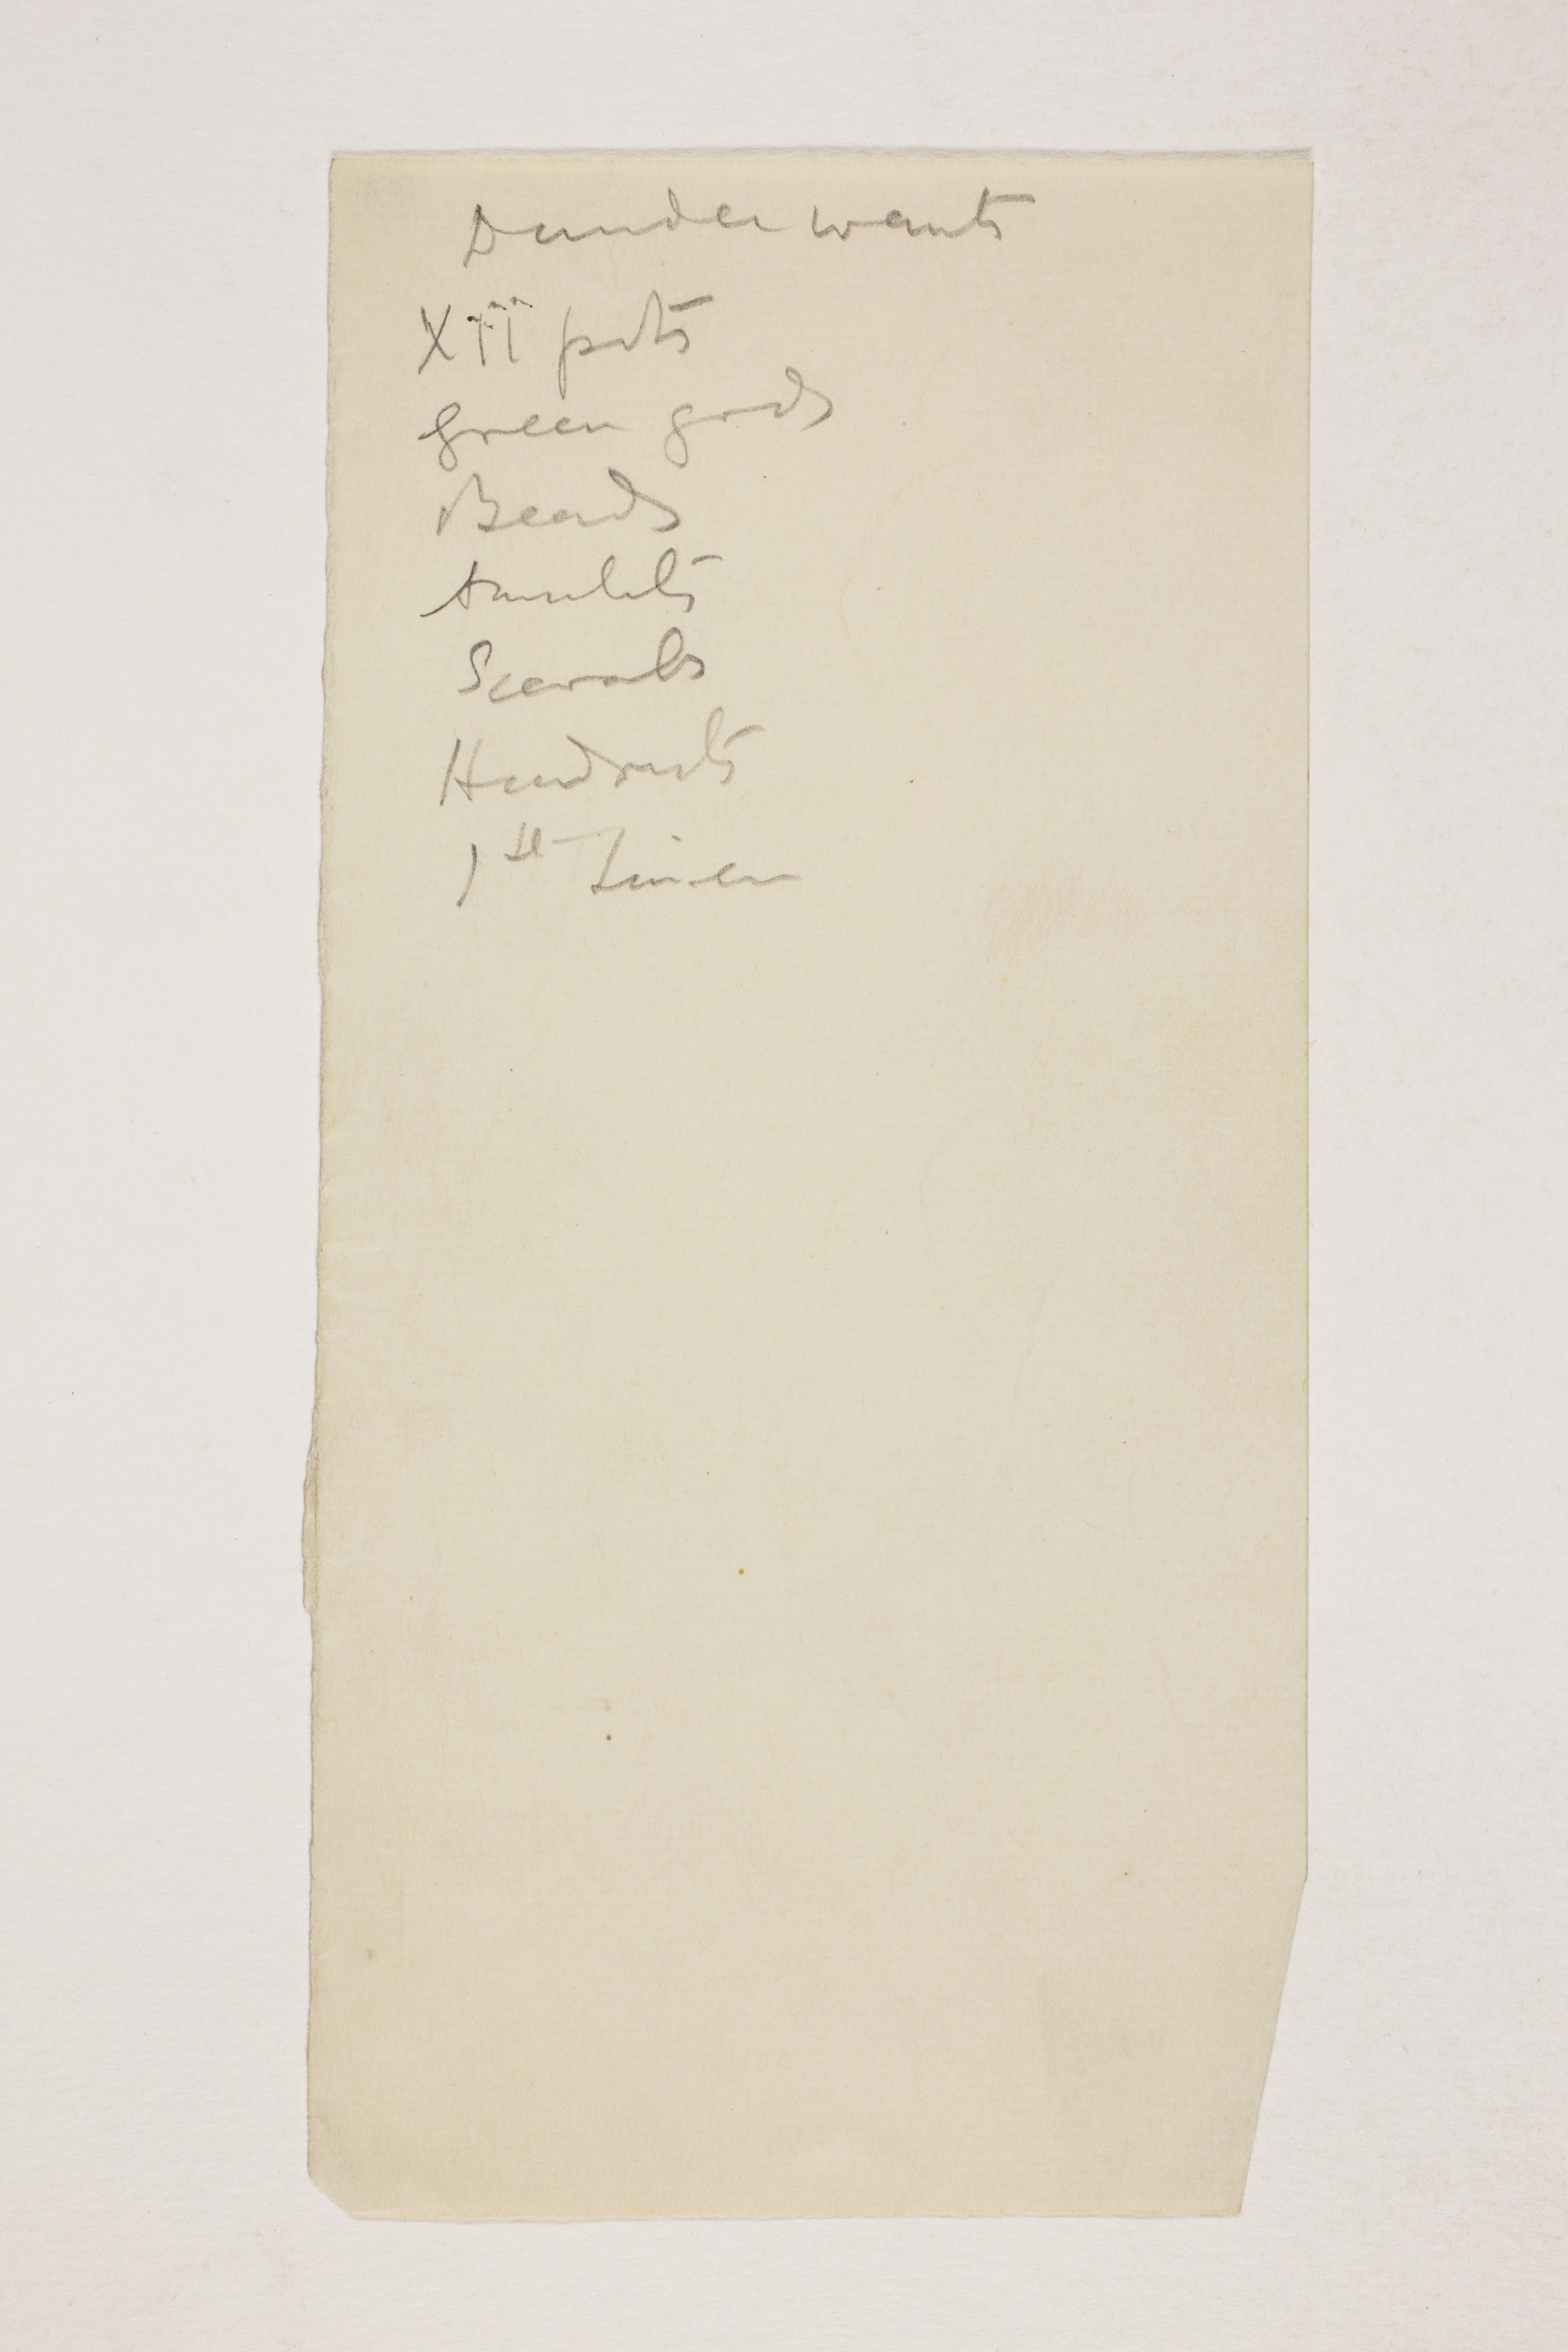 Dundee wants
XII pots
Green gods
Beads
Amulets
Scarabs
Headrests
1st Linen